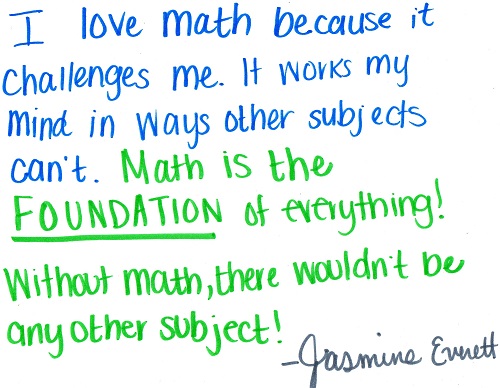 I love math because it
challenges me. It works my
mind in ways other subjects
can't. Math is the
FOUNDATION of everything!
Without math, there wouldn't be
any other subject!
-Jasmine Everett